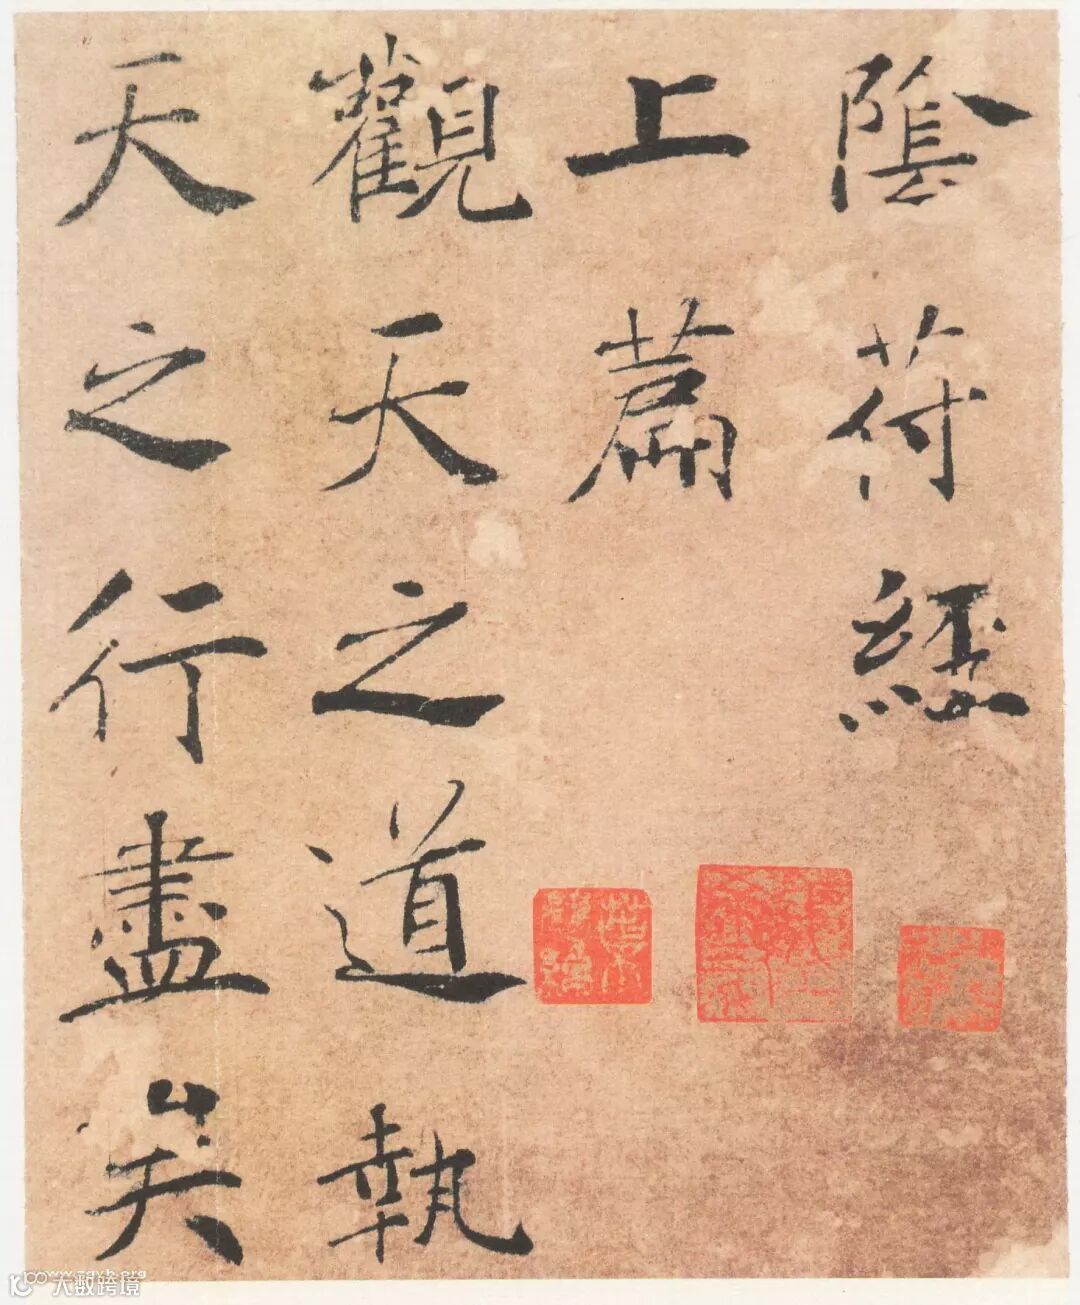 陰符經
上篇
觀天之道執
天之行盡矣
大數跨境